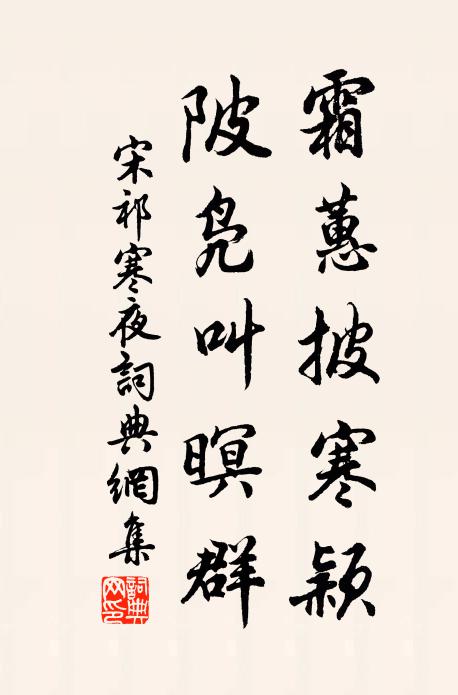 霜蕙披寒穎
陂鳧叫暝群
宋祁寒夜詞典網集
詞典網印